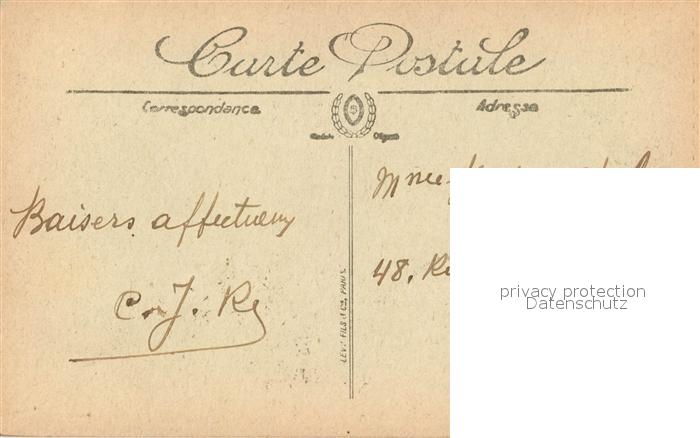 Carte Postale
Correspondance
Adresse
Baisers affectueux
C. J. Ry
48, R
LEVY FILS & Co, PARIS
privacy protection
Datenschutz